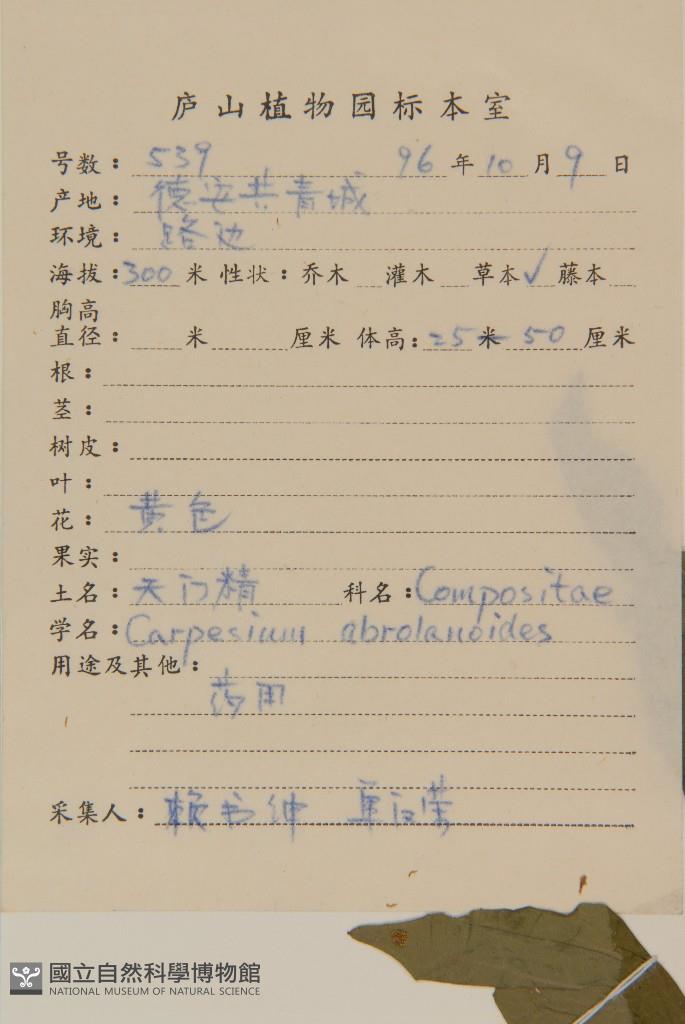 庐山植物园标本室
号数：539 96年10月9日
产地：德安共青城
环境：路边
海拔：300米 性状：乔木 灌木 草本✓ 藤本
胸高
直径： 米 厘米 体高：25米 50厘米
根：
茎：
树皮：
叶：
花：黄色
果实：
土名：天门精 科名：Compositae
学名：Carpesium abrolanoides
用途及其他：
药用
采集人：赖书绅
國立自然科學博物館
NATIONAL MUSEUM OF NATURAL SCIENCE